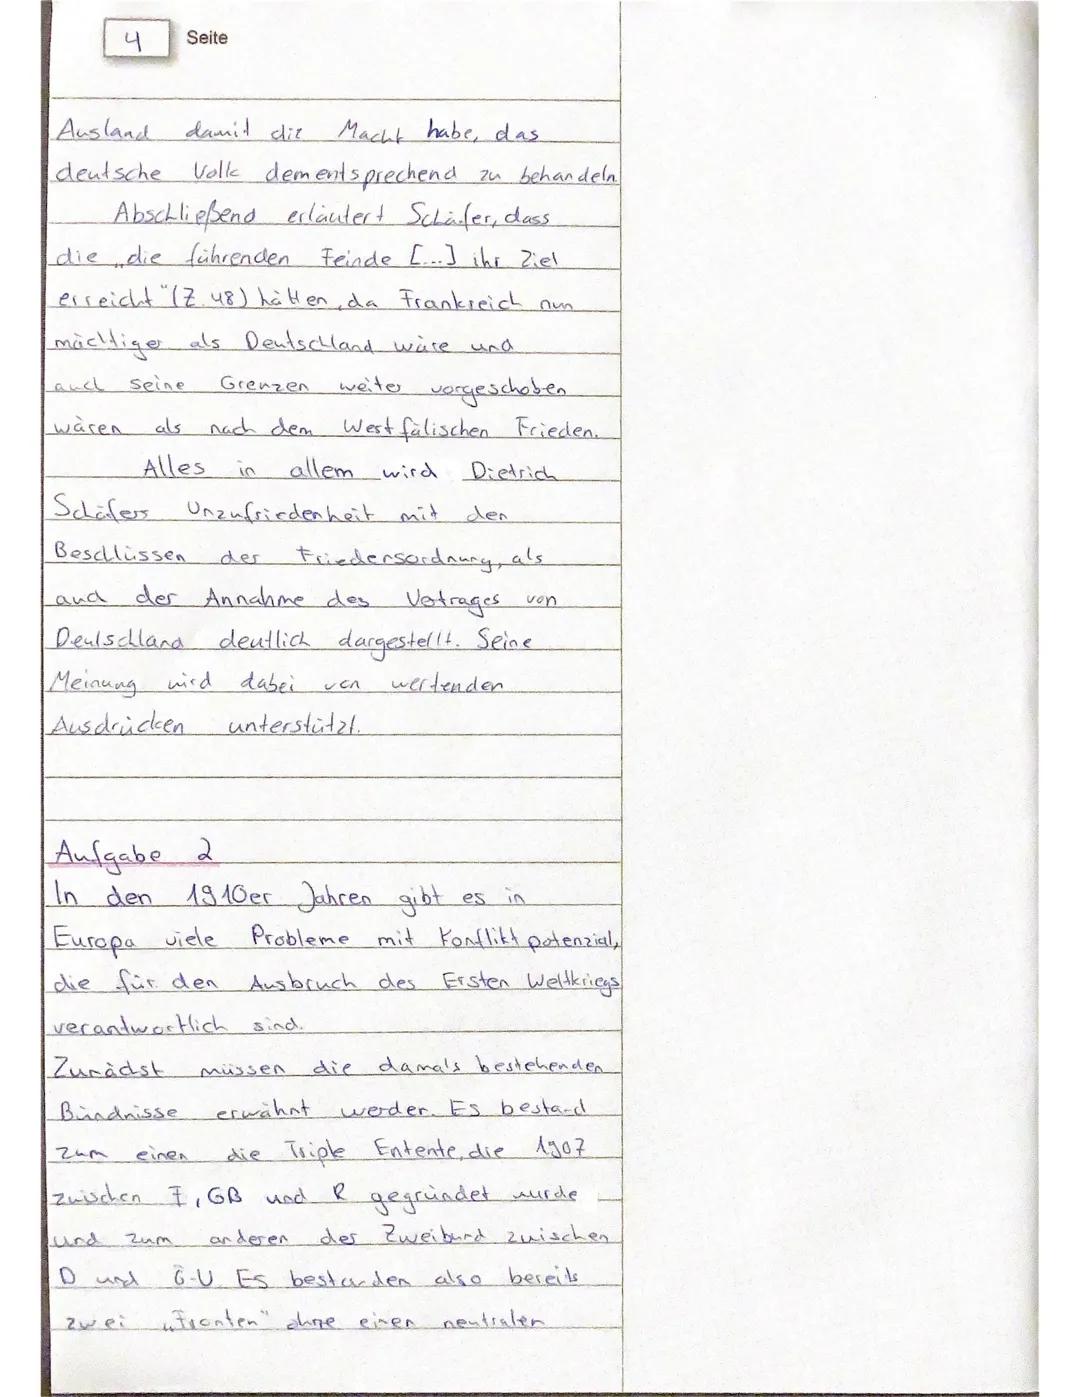 4 Seite
Ausland damit die Macht habe, das
deutsche Volk dementsprechend zu behandeln
Abschließend erläutert Schäfer, dass
die „die führenden Feinde [...] ihr Ziel
erreicht" (Z. 48) hätten, da Frankreich nun
mächtiger als Deutschland wäre und
auch seine Grenzen weiter vorgeschoben
wären als nach dem Westfälischen Frieden.
Alles in allem wird Dietrich
Schäfers Unzufriedenheit mit den
Beschlüssen der Friedensordnung, als
auch der Annahme des Vertrages von
Deutschland deutlich dargestellt. Seine
Meinung wird dabei von wertenden
Ausdrücken unterstützt.
Aufgabe 2
In den 1910er Jahren gibt es in
Europa viele Probleme mit Konfliktpotenzial,
die für den Ausbruch des Ersten Weltkriegs
verantwortlich sind.
Zunächst müssen die damals bestehenden
Bündnisse erwähnt werden. Es bestand
zum einen die Triple Entente, die 1907
zwischen F, GB und R gegründet wurde
und zum anderen der Zweibund zwischen
D und Ö-U. Es bestanden also bereits
zwei „Fronten" ohne einen neutralen